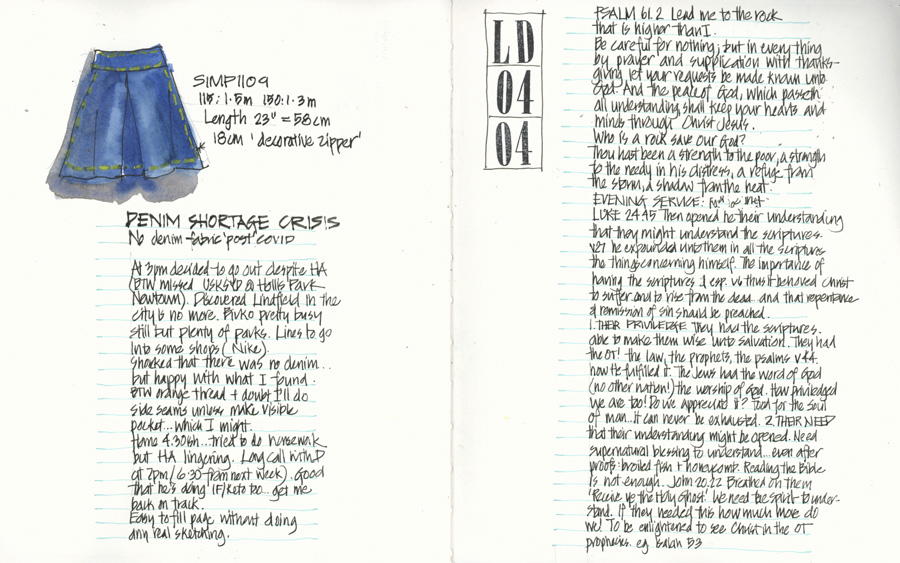 SIMP1109
115: 1.5m 150: 1.3m
Length 23" = 58cm
18cm 'decorative zipper'
DENIM SHORTAGE CRISIS
No denim fabric 'post' COVID
At 3pm decided to go out despite HA
(BTW missed USKSYD @ Hollis Park
Newtown). Discovered Lindfield in the
city is no more. Rivko pretty busy
still but plenty of parks. Lines to go
into some shops (Nike).
Shocked that there was no denim..
but happy with what I found.
BTW orange thread + doubt I'll do
side seams unless make visible
pocket...which I might.
Home 4.30ish...tried to do housework
but HA lingering. Long call with D
at 7pm/6.30 from next week). Good
that he's doing IF/Keto too... get me
back on track.
Easy to fill page without doing
any real sketching.
LD
04
04
PSALM 61.2 Lead me to the rock
that is higher than I.
Be careful for nothing; but in every thing
by prayer and supplication with thanks-
giving let your requests be made known unto
God. And the peace of God, which passeth
all understanding, shall keep your hearts and
minds through Christ Jesus.
Who is a rock save our God?
Thou hast been a strength to the poor, a strength
to the needy in his distress, a refuge from
the storm, a shadow from the heat.
EVENING SERVICE:
LUKE 24.45 Then opened he their understanding
that they might understand the scriptures.
v27 he expounded unto them in all the scriptures
the things concerning himself. The importance of
having the scriptures & esp. v6 thus it behoved Christ
to suffer and to rise from the dead and that repentance
& remission of sin should be preached.
1. THEIR PRIVILEDGE They had the scriptures.
able to make them wise unto salvation. They had
the OT! the law, the prophets, the psalms v44.
how He fulfilled it. The Jews had the word of God
(no other nation!) the worship of God. How priviledged
we are too! Do we appreciate it? Food for the soul
of man...it can never be exhausted. 2. THEIR NEED
that their understanding might be opened. Need
supernatural blessing to understand... even after
proofs: broiled fish + honeycomb. Reading the Bible
is not enough. John 20.22 Breathed on them
'Receive ye the Holy Ghost.' We need the spirit to under-
stand. If they needed this how much more do
we! To be enlightened to see Christ in the OT
prophecies. eg Isaiah 53